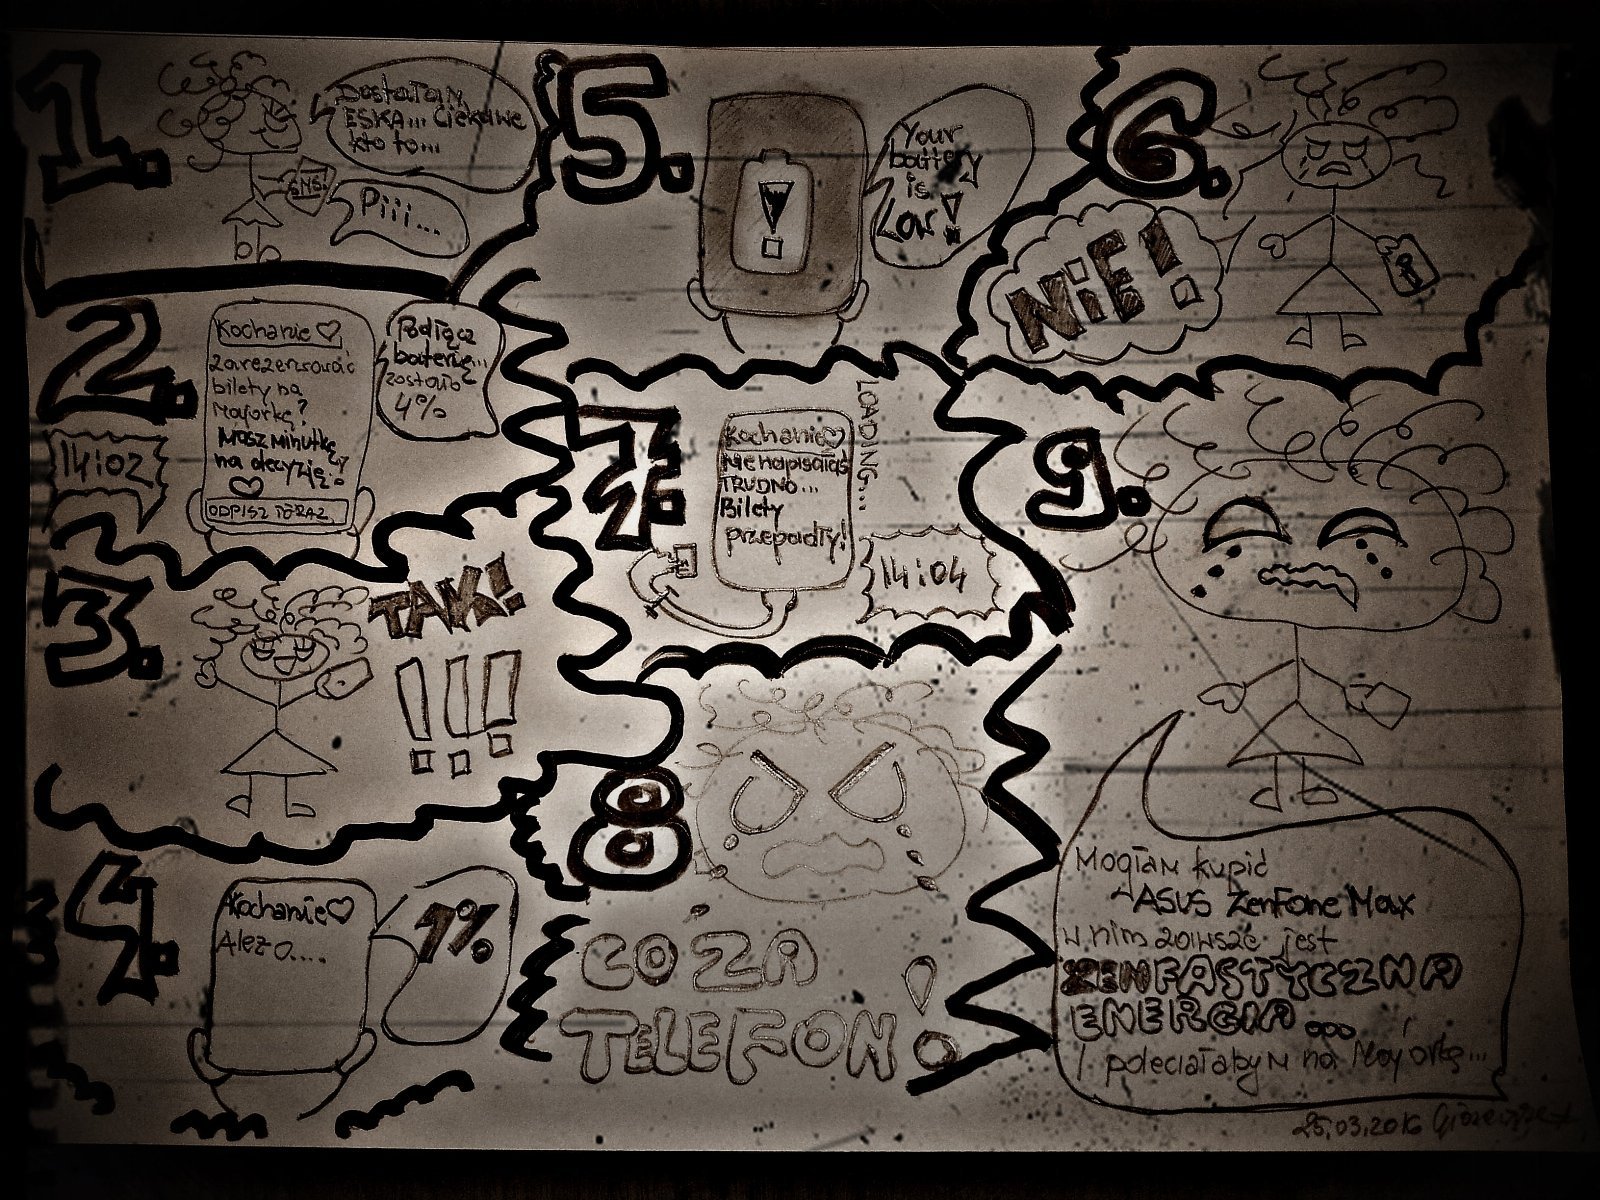 1.
Dostałam
ESKA... Ciekawe
kto to...
SMS!
Piii...
2.
Kochanie ♡
zarezerwować
bilety na
Majorkę?
Masz minutkę
na decyzję?
♡
ODPISZ TERAZ
Podłącz
baterię...
zostało
4%
14:02
3.
TAK!
!!!
4.
Kochanie ♡
Ależ o....
1%
5.
Your
battery
is
Low!
6.
NIE!
7.
Kochanie ♡
Nie napisałaś
TRUDNO...
Bilety
przepadły!
LOADING...
14:04
8.
CO ZA
TELEFON!
9.
Mogłam kupić
ASUS ZenFone Max
w nim zawsze jest
ZENFASTYCZNA
ENERGIA...
I poleciałabym na Majorkę...
25.03.2016